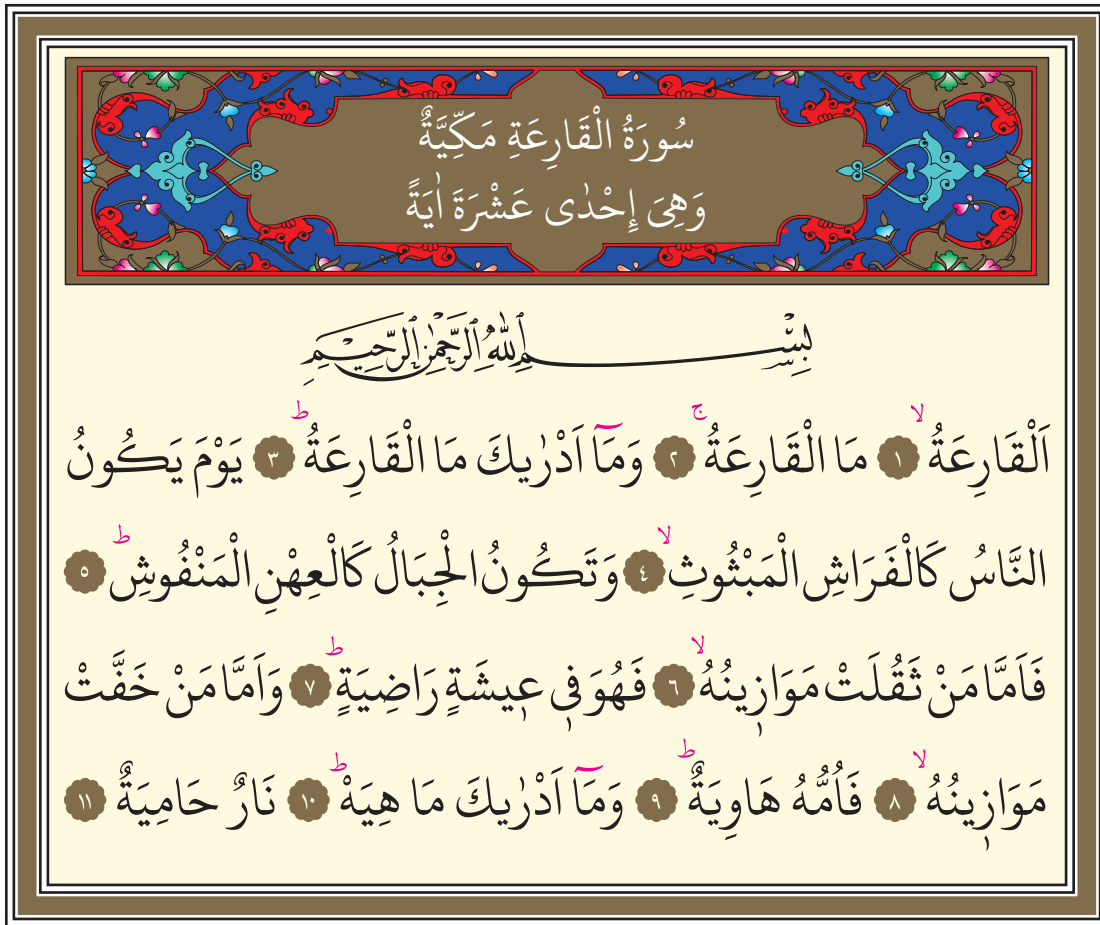 سُورَةُ الْقَارِعَةِ مَكِّيَّةٌ
وَهِىَ إِحْدٰى عَشْرَةَ اٰيَةً
بِسْمِ اللّٰهِ الرَّحْمٰنِ الرَّحِيمِ
اَلْقَارِعَةُۙ ١ مَا الْقَارِعَةُۚ ٢ وَمَٓا اَدْرٰيكَ مَا الْقَارِعَةُؕ ٣ يَوْمَ يَكُونُ
النَّاسُ كَالْفَرَاشِ الْمَبْثُوثِۙ ٤ وَتَكُونُ الْجِبَالُ كَالْعِهْنِ الْمَنْفُوشِؕ ٥
فَاَمَّا مَنْ ثَقُلَتْ مَوَازٖينُهُۙ ٦ فَهُوَ فٖى عٖيشَةٍ رَاضِيَةٍؕ ٧ وَاَمَّا مَنْ خَفَّتْ
مَوَازٖينُهُۙ ٨ فَاُمُّهُ هَاوِيَةٌؕ ٩ وَمَٓا اَدْرٰيكَ مَا هِيَهْؕ ١٠ نَارٌ حَامِيَةٌ ١١